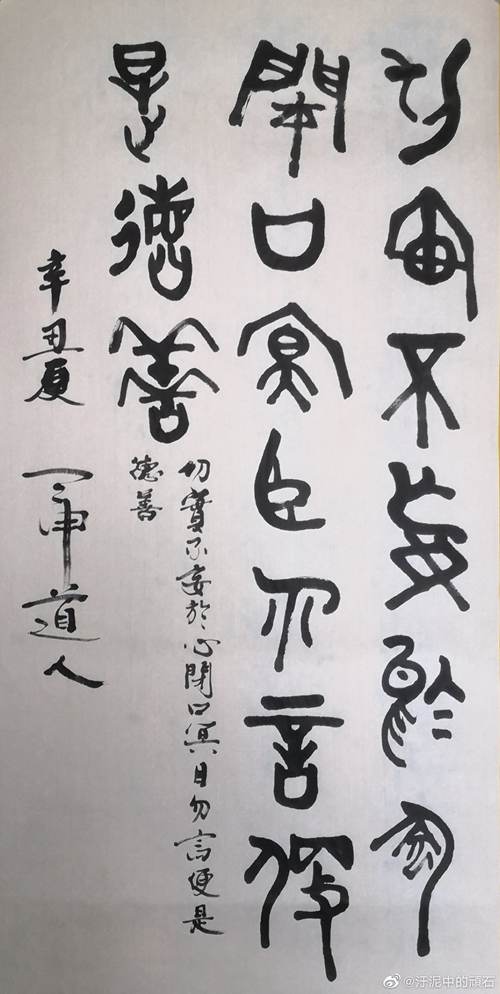 切實不妄於心
閉口冥目勿言便
是德善
切實不妄於心閉口冥目勿言便是
德善
辛丑夏
道人
@汙泥中的頑石